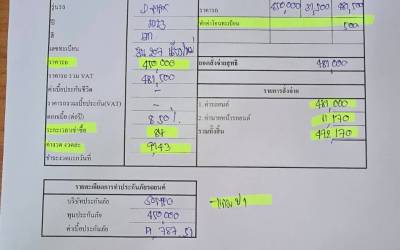 รุ่นรถ D-MAX
ราคารถ 450,000 31,500 481,500
ปี 2023
ค่าดำเนินโอนทะเบียน 500
สี เทา
เลขทะเบียน
ราคารถ 450,000
ยอดสั่งจ่ายสุทธิ 481,000
ราคารถ รวม VAT 481,500
ค่าเบี้ยประกันชีวิต -
รายการสั่งจ่าย
ราคารถรวมเบี้ยประกัน(VAT) -
1. ค่ารถยนต์ 481,000
ดอกเบี้ย (ต่อปี) 8.50 %
ระยะเวลาเช่าซื้อ 84
รวมทั้งสิ้น
ค่างวด งวดละ 9,143
ชำระงวดแรกวันที่
รายละเอียดการทำประกันภัยรถยนต์
บริษัทประกันภัย
ทุนประกันภัย 450,000
ค่าเบี้ยประกันภัย